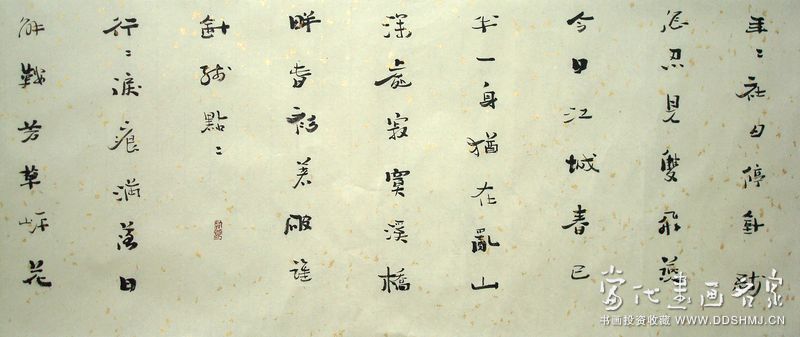 年〻社日停針綫
怎忍見雙飛燕
今日江城春已
半一身猶在亂山
深處寂寞溪橋
畔春衫着破誰
針綫點〻
行〻淚痕滿落日
解鞍芳草岸花
當代書画名家
书画投资收藏 WWW.DDSHMJ.CN